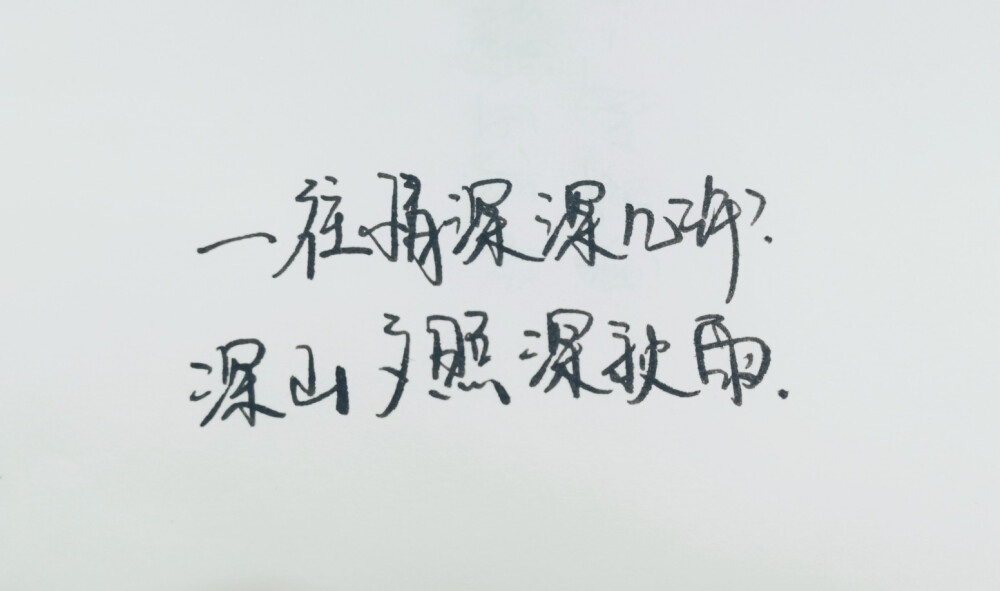 一往情深深几许?
深山夕照深秋雨.